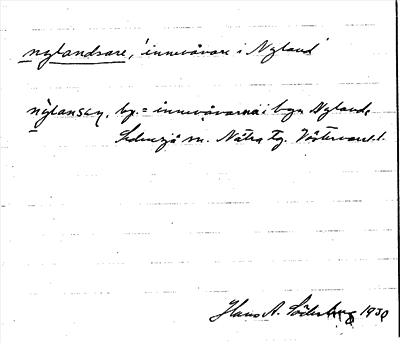 nylandsare, 'innevånare i Nyland'
nylansar, by. = innevånarna i byn Nyland,
Sidensjö sn. Nätra tg. Västernorrl. l.
Hans A. Söderberg 1930